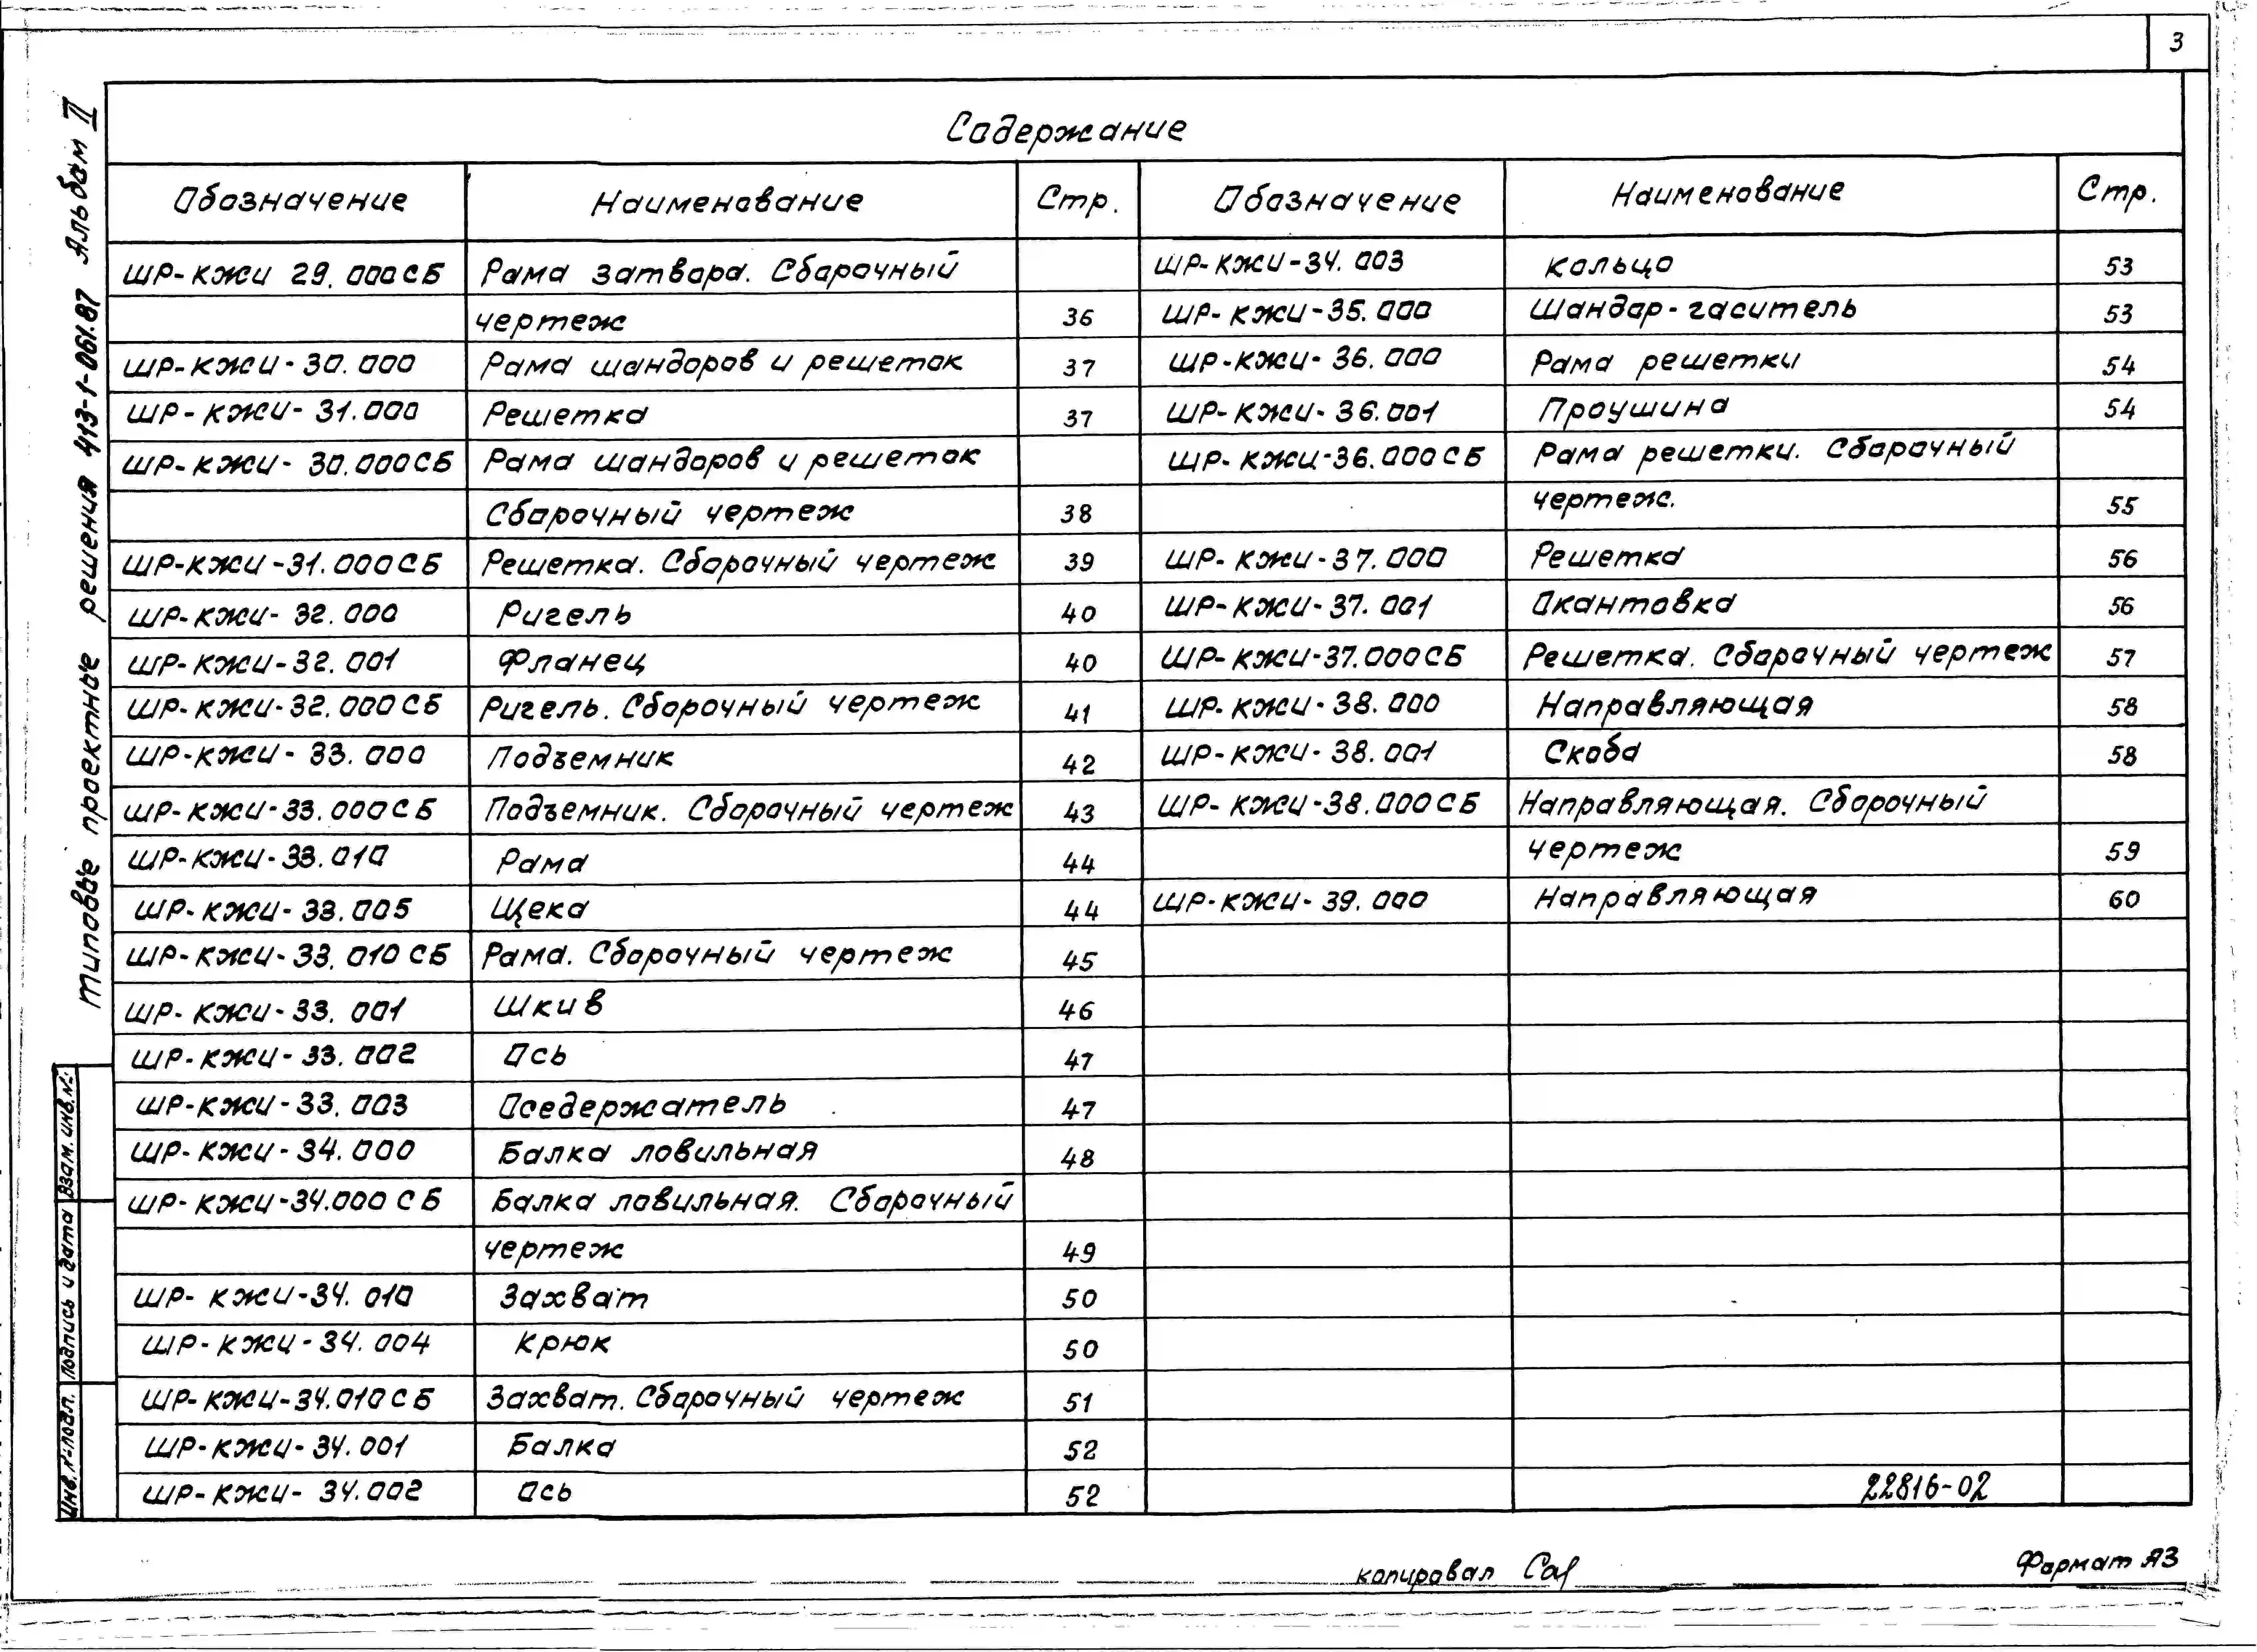 3
Типовые проектные решения 413-1-061.87 Альбом II
Содержание
Обозначение Наименование Стр. Обозначение Наименование Стр.
ШР-КЖИ 29.000СБ Рама затвора. Сборочный
чертеж 36
ШР-КЖИ-30.000 Рама шандоров и решеток 37
ШР-КЖИ-31.000 Решетка 37
ШР-КЖИ-30.000СБ Рама шандоров и решеток
Сборочный чертеж 38
ШР-КЖИ-31.000СБ Решетка. Сборочный чертеж 39
ШР-КЖИ-32.000 Ригель 40
ШР-КЖИ-32.001 Фланец 40
ШР-КЖИ-32.000СБ Ригель. Сборочный чертеж 41
ШР-КЖИ-33.000 Подъемник 42
ШР-КЖИ-33.000СБ Подъемник. Сборочный чертеж 43
ШР-КЖИ-33.010 Рама 44
ШР-КЖИ-33.005 Щека 44
ШР-КЖИ-33.010 СБ Рама. Сборочный чертеж 45
ШР-КЖИ-33.001 Шкив 46
ШР-КЖИ-33.002 Ось 47
ШР-КЖИ-33.003 Оседержатель 47
ШР-КЖИ-34.000 Балка ловильная 48
ШР-КЖИ-34.000 СБ Балка ловильная. Сборочный
чертеж 49
ШР-КЖИ-34.010 Захват 50
ШР-КЖИ-34.004 Крюк 50
ШР-КЖИ-34.010СБ Захват. Сборочный чертеж 51
ШР-КЖИ-34.001 Балка 52
ШР-КЖИ-34.002 Ось 52
ШР-КЖИ-34.003 Кольцо 53
ШР-КЖИ-35.000 Шандор-гаситель 53
ШР-КЖИ-36.000 Рама решетки 54
ШР-КЖИ-36.001 Проушина 54
ШР-КЖИ-36.000СБ Рама решетки. Сборочный
чертеж. 55
ШР-КЖИ-37.000 Решетка 56
ШР-КЖИ-37.001 Окантовка 56
ШР-КЖИ-37.000СБ Решетка. Сборочный чертеж 57
ШР-КЖИ-38.000 Направляющая 58
ШР-КЖИ-38.001 Скоба 58
ШР-КЖИ-38.000СБ Направляющая. Сборочный
чертеж 59
ШР-КЖИ-39.000 Направляющая 60
22816-02
Взам. инв. №
Подпись и дата
Инв. № подл.
копировал
Формат А3